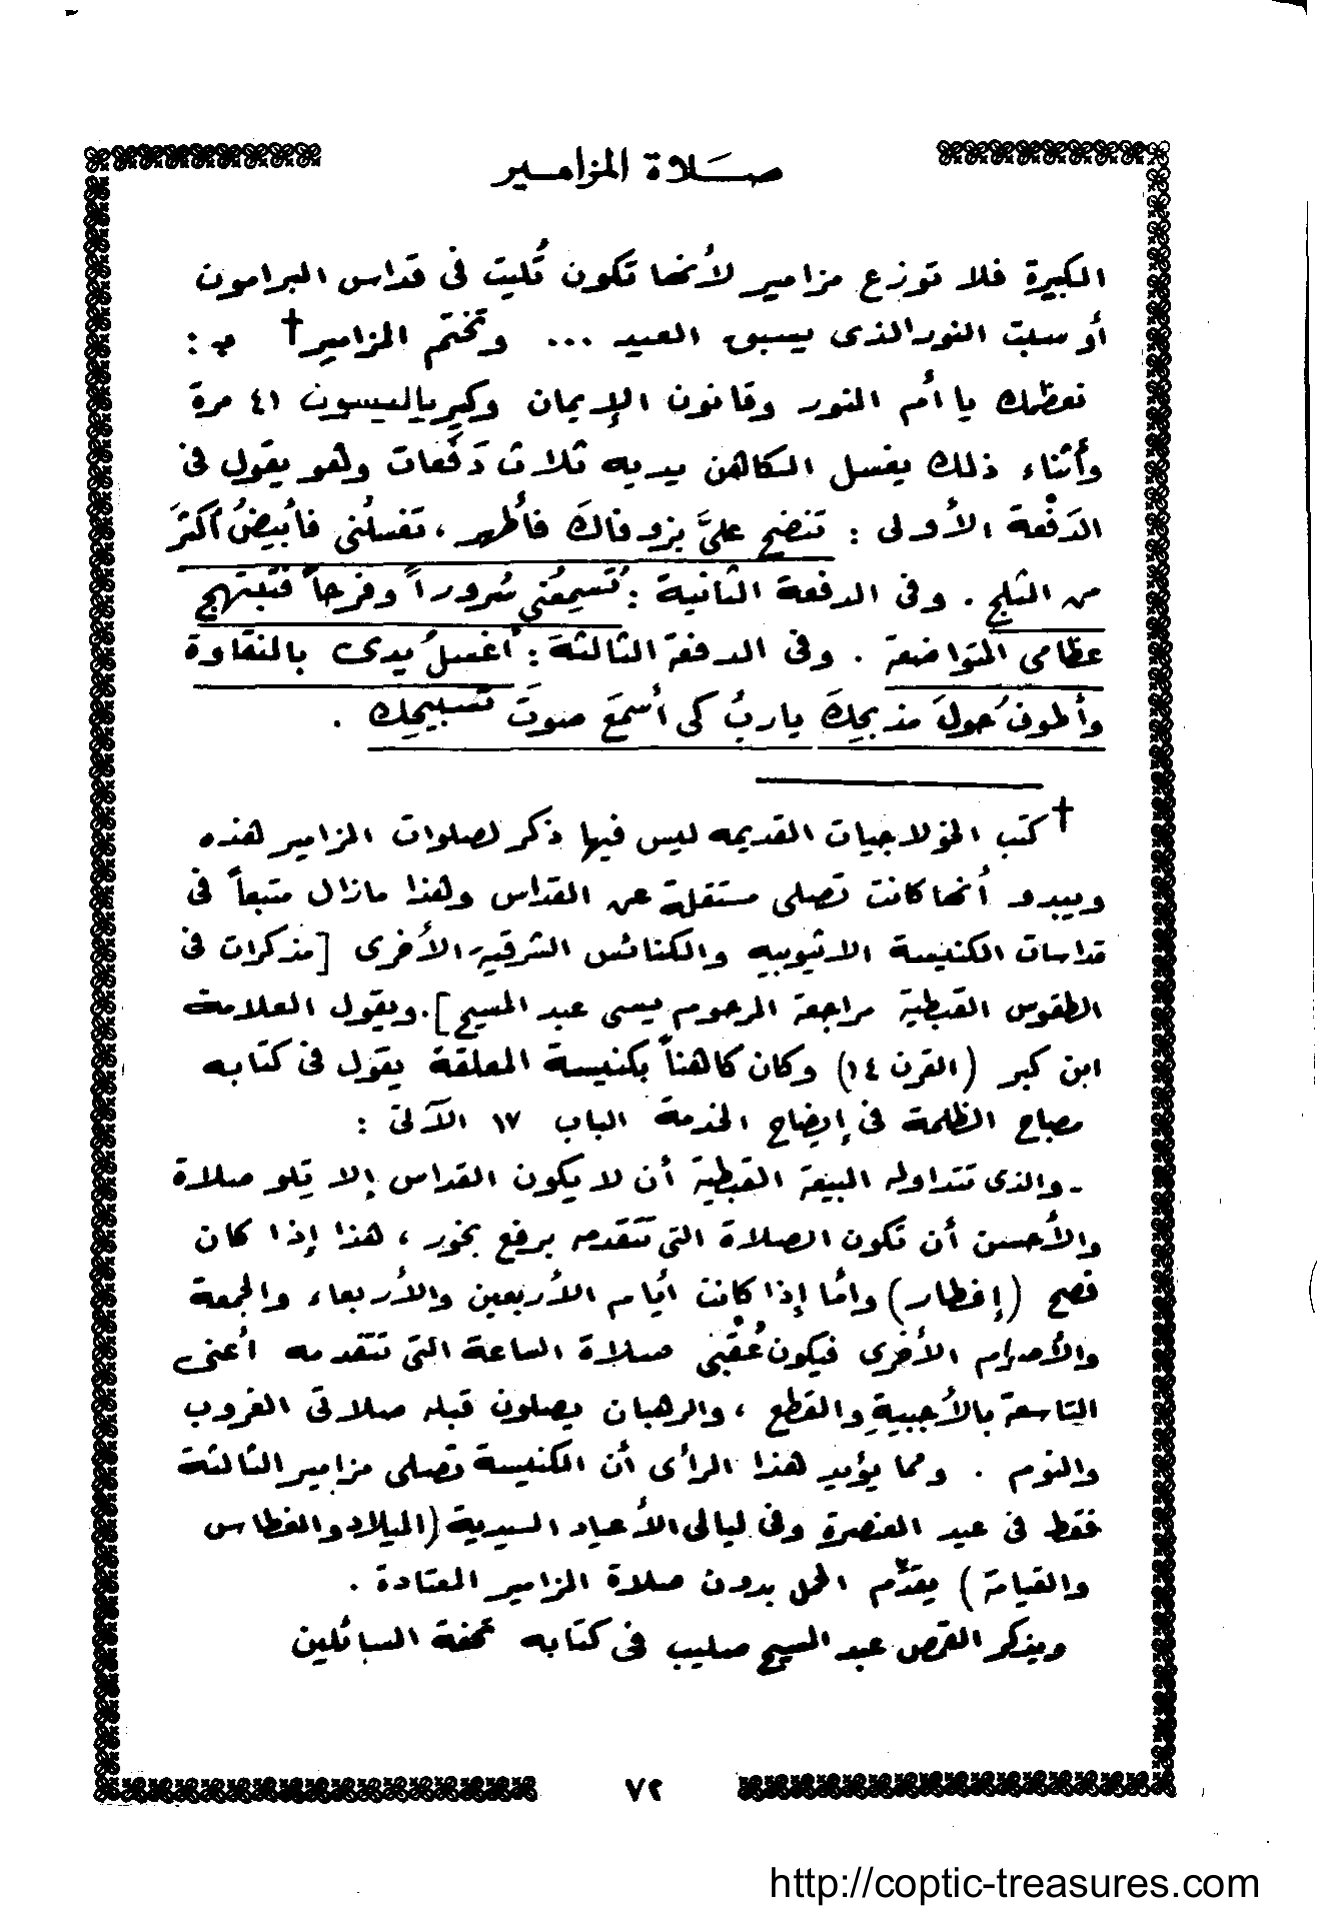 صلاة المزامير
الكبيرة فلا توزع مزامير لأنها تكون تُليت فى قداس البرامون
أو سبت النور الذى يسبق العيد ... وتختم المزامير† بـ :
نعظمك يا أم النور وقانون الإيمان وكيرياليسون ٤١ مرة
وأثناء ذلك يغسل الكاهن يديه ثلاث دَفَعات وهو يقول فى
الدَفْعة الأولى : تنضح علىَّ بزوفاكَ فأطهر ، تغسلُنى فأبيضُ أكثرَ
من الثلج . وفى الدفعة الثانية : تُسمِعُنى سُروراً وفرحاً فتبتهج
عظامى المتواضعة . وفى الدفعة الثالثة : أغسلُ يدى بالنقاوة
وأطوفُ حولَ مذبحِكَ ياربُ كى أسمعَ صوتَ تسبيحِك .
† كتب الخولاجيات القديمه ليس فيها ذكر لصلوات المزامير هذه
ويبدو أنها كانت تصلى مستقلة عن القداس وهذا مازال متبعاً فى
قداسات الكنيسة الاثيوبيه والكنائس الشرقية الأخرى [مذكرات فى
الطقوس القبطية مراجعة المرحوم يسى عبد المسيح]. ويقول العلامة
ابن كبر (القرن ١٤) وكان كاهناً بكنيسة المعلقة يقول فى كتابه
مصباح الظلمة فى إيضاح الخدمة الباب ١٧ الآتى :
ـ والذى تتداوله البيعة القبطية أن لا يكون القداس إلا تلو صلاة
والأحسن أن تكون الصلاة التى تتقدمه برفع بخور ، هذا إذا كان
فصح (إفطار) وأما إذا كانت أيام الأربعين والأربعاء والجمعة
والأصوام الأخرى فيكون عُقْبى صلاة الساعة التى تتقدمه أعنى
التاسعة بالأجبية والقطع ، والرهبان يصلون قبله صلاتى الغروب
والنوم . ومما يؤيد هذا الرأى أن الكنيسة تصلى مزامير الثالثة
فقط فى عيد العنصرة وفى ليالى الأعياد السيدية (الميلاد والغطاس
والقيامة) يقدَّم الحمل بدون صلاة المزامير المعتادة .
ويذكر القمص عبد المسيح صليب فى كتابه تحفة السائلين
٧٢
http://coptic-treasures.com